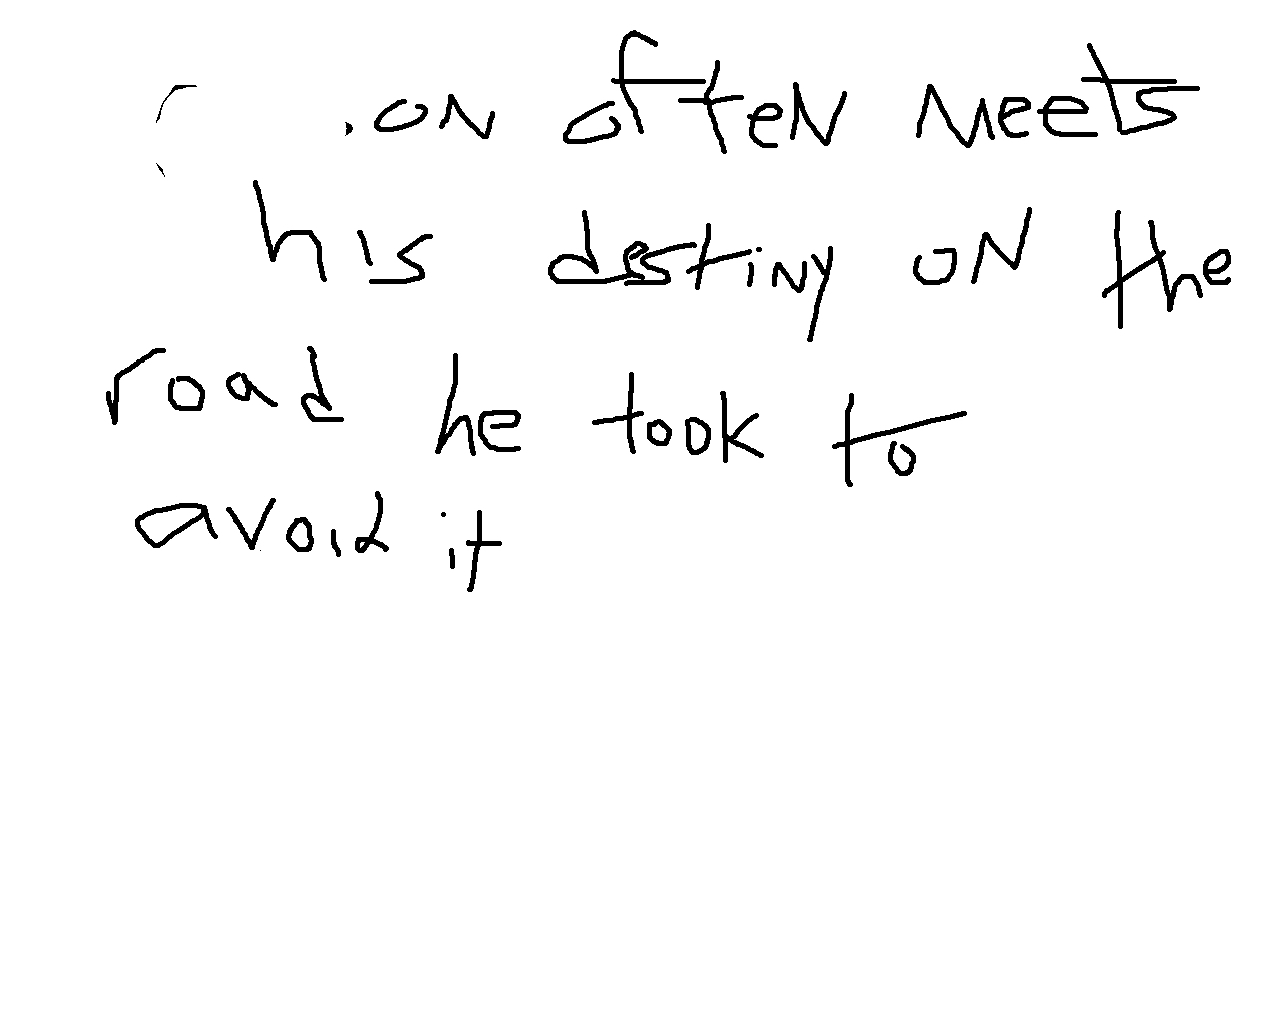 on often meets
his destiny on the
road he took to
avoid it